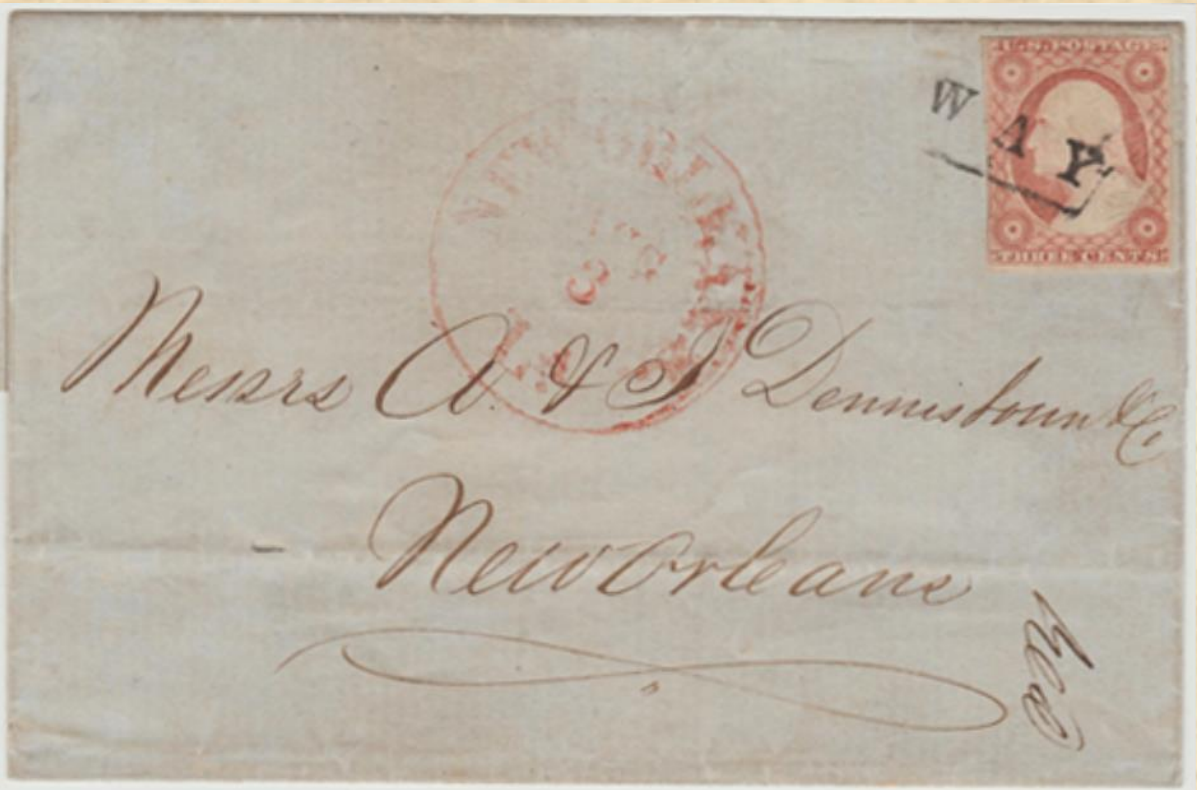 U.S. POSTAGE
WAY
THREE CENTS
NEW ORLEANS
La
Messrs A. & J Dennistoun & Co
New Orleans